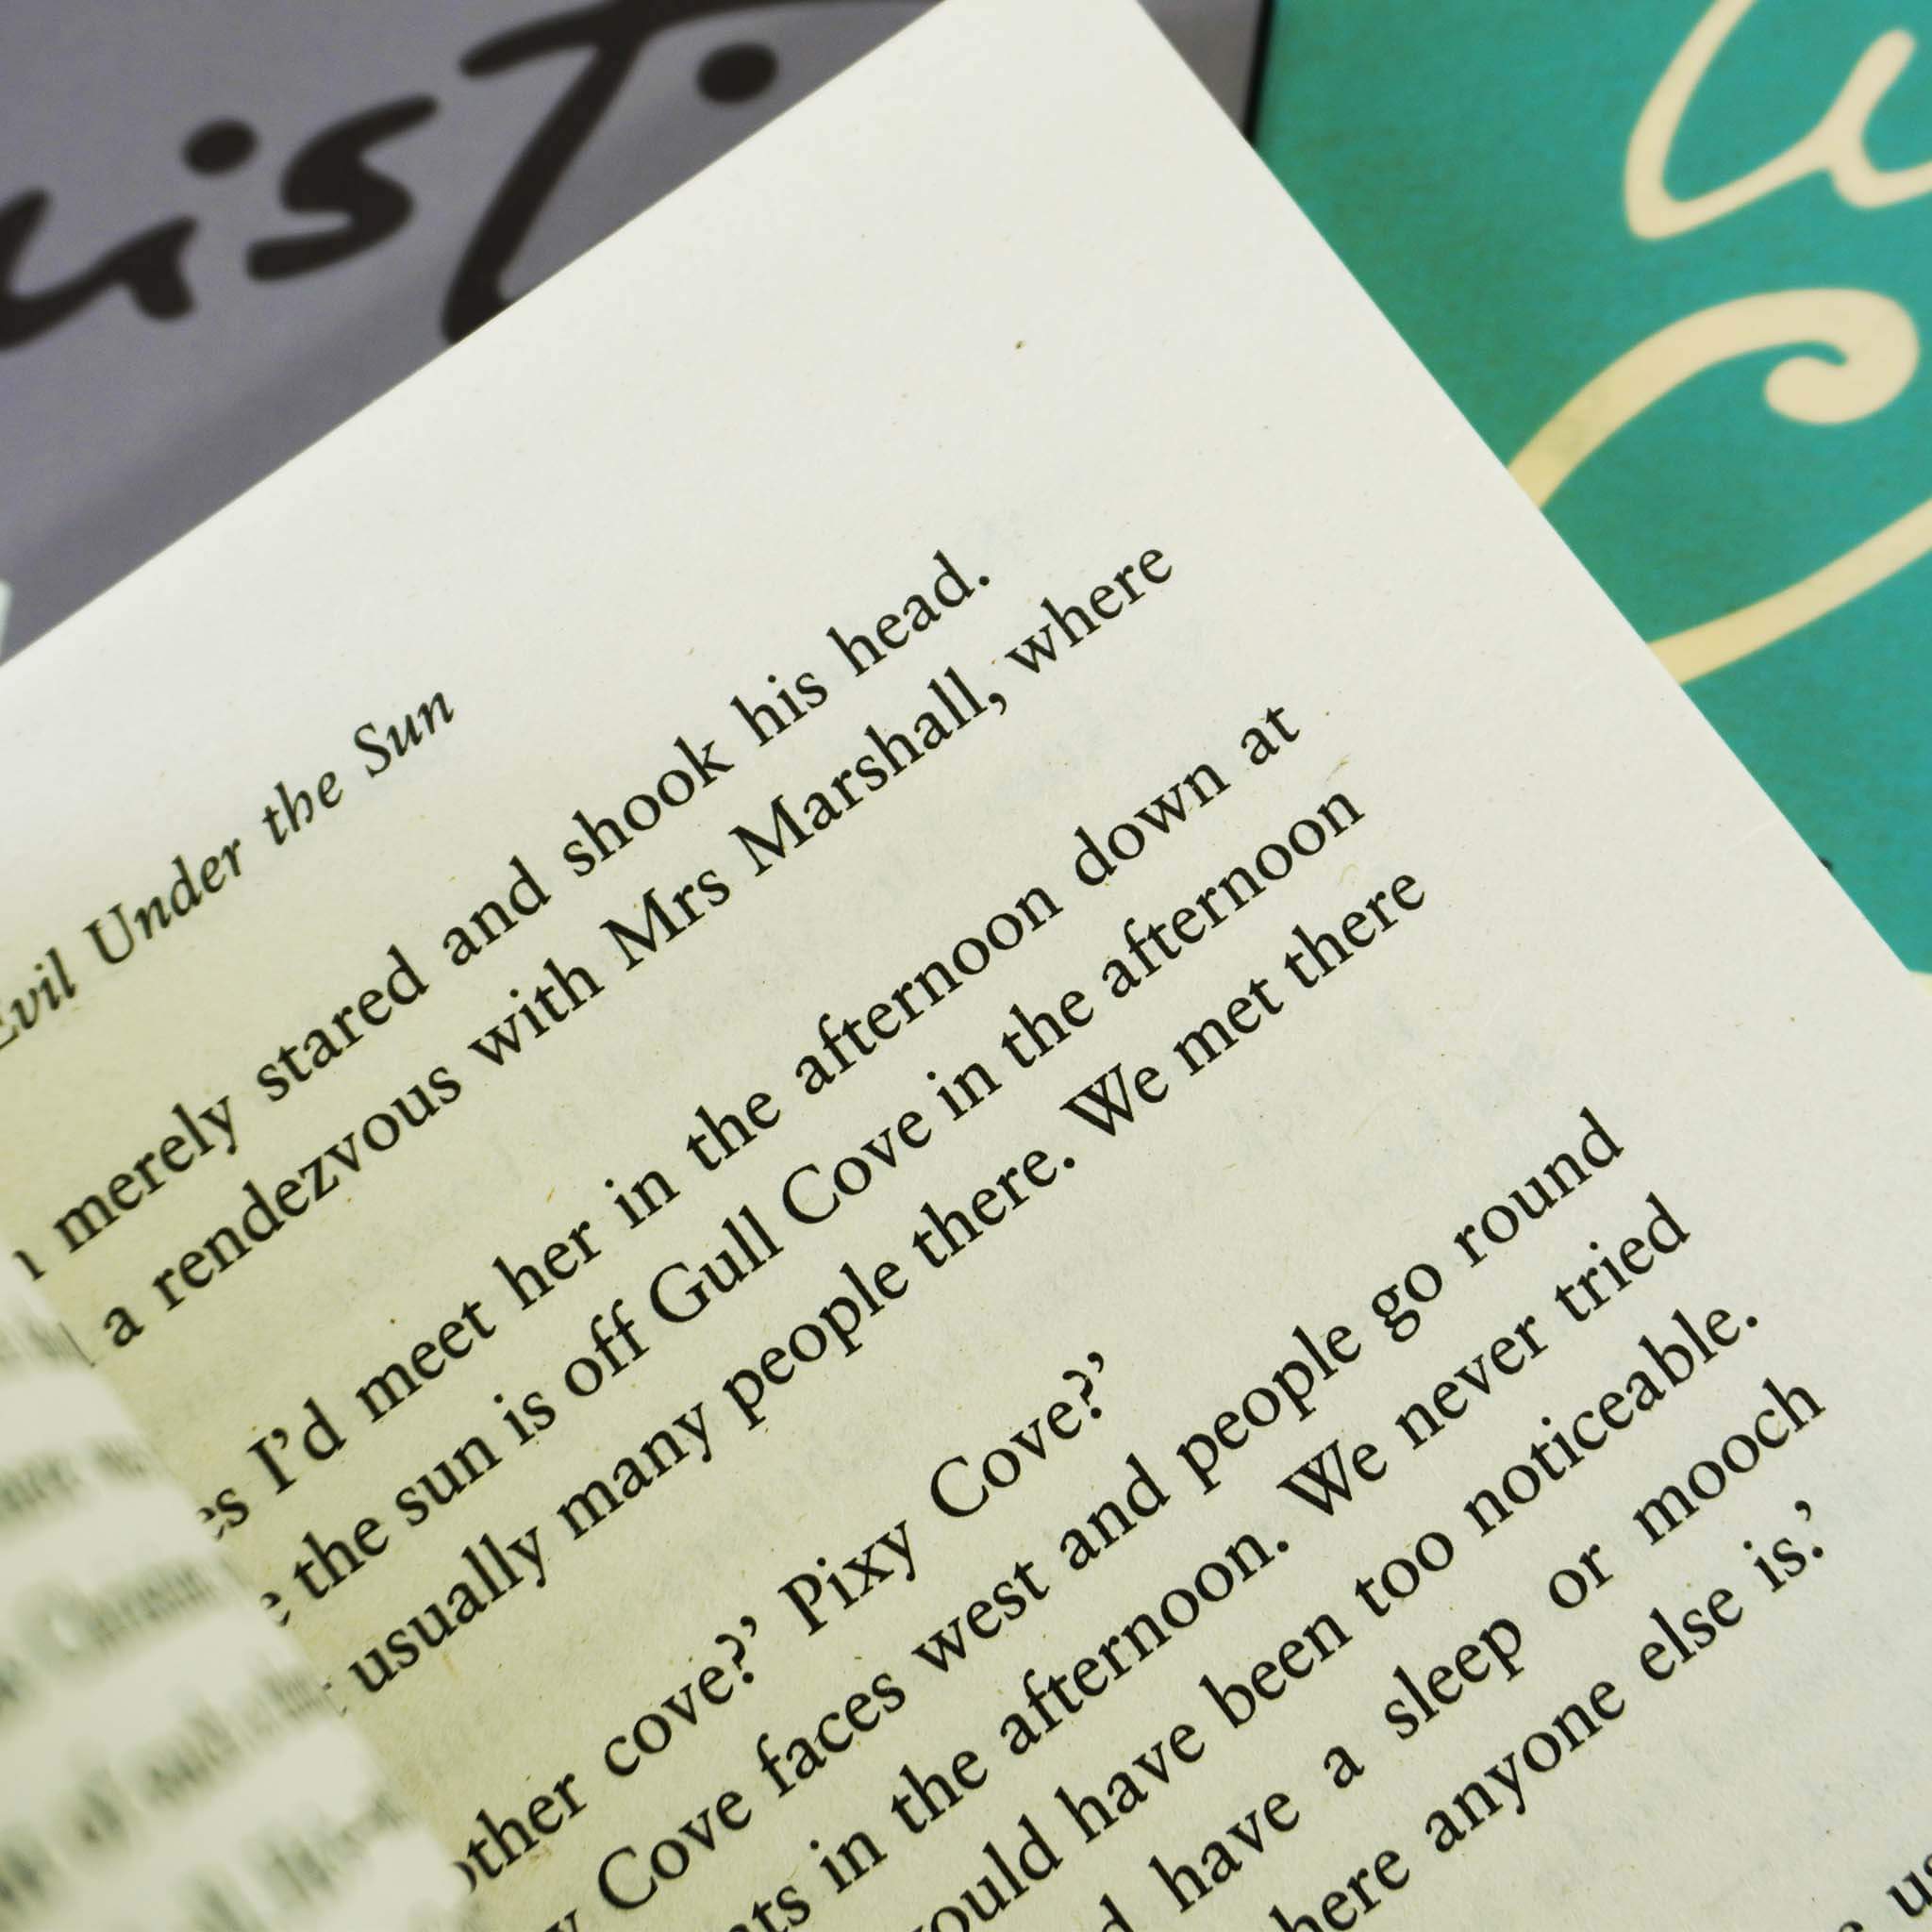 uisT
Evil Under the Sun
merely stared and shook his head.
a rendezvous with Mrs Marshall, where
I'd meet her in the afternoon down at
the sun is off Gull Cove in the afternoon
usually many people there. We met there
other cove?' Pixy Cove?'
Cove faces west and people go round
in the afternoon. We never tried
would have been too noticeable.
have a sleep or mooch
where anyone else is.'